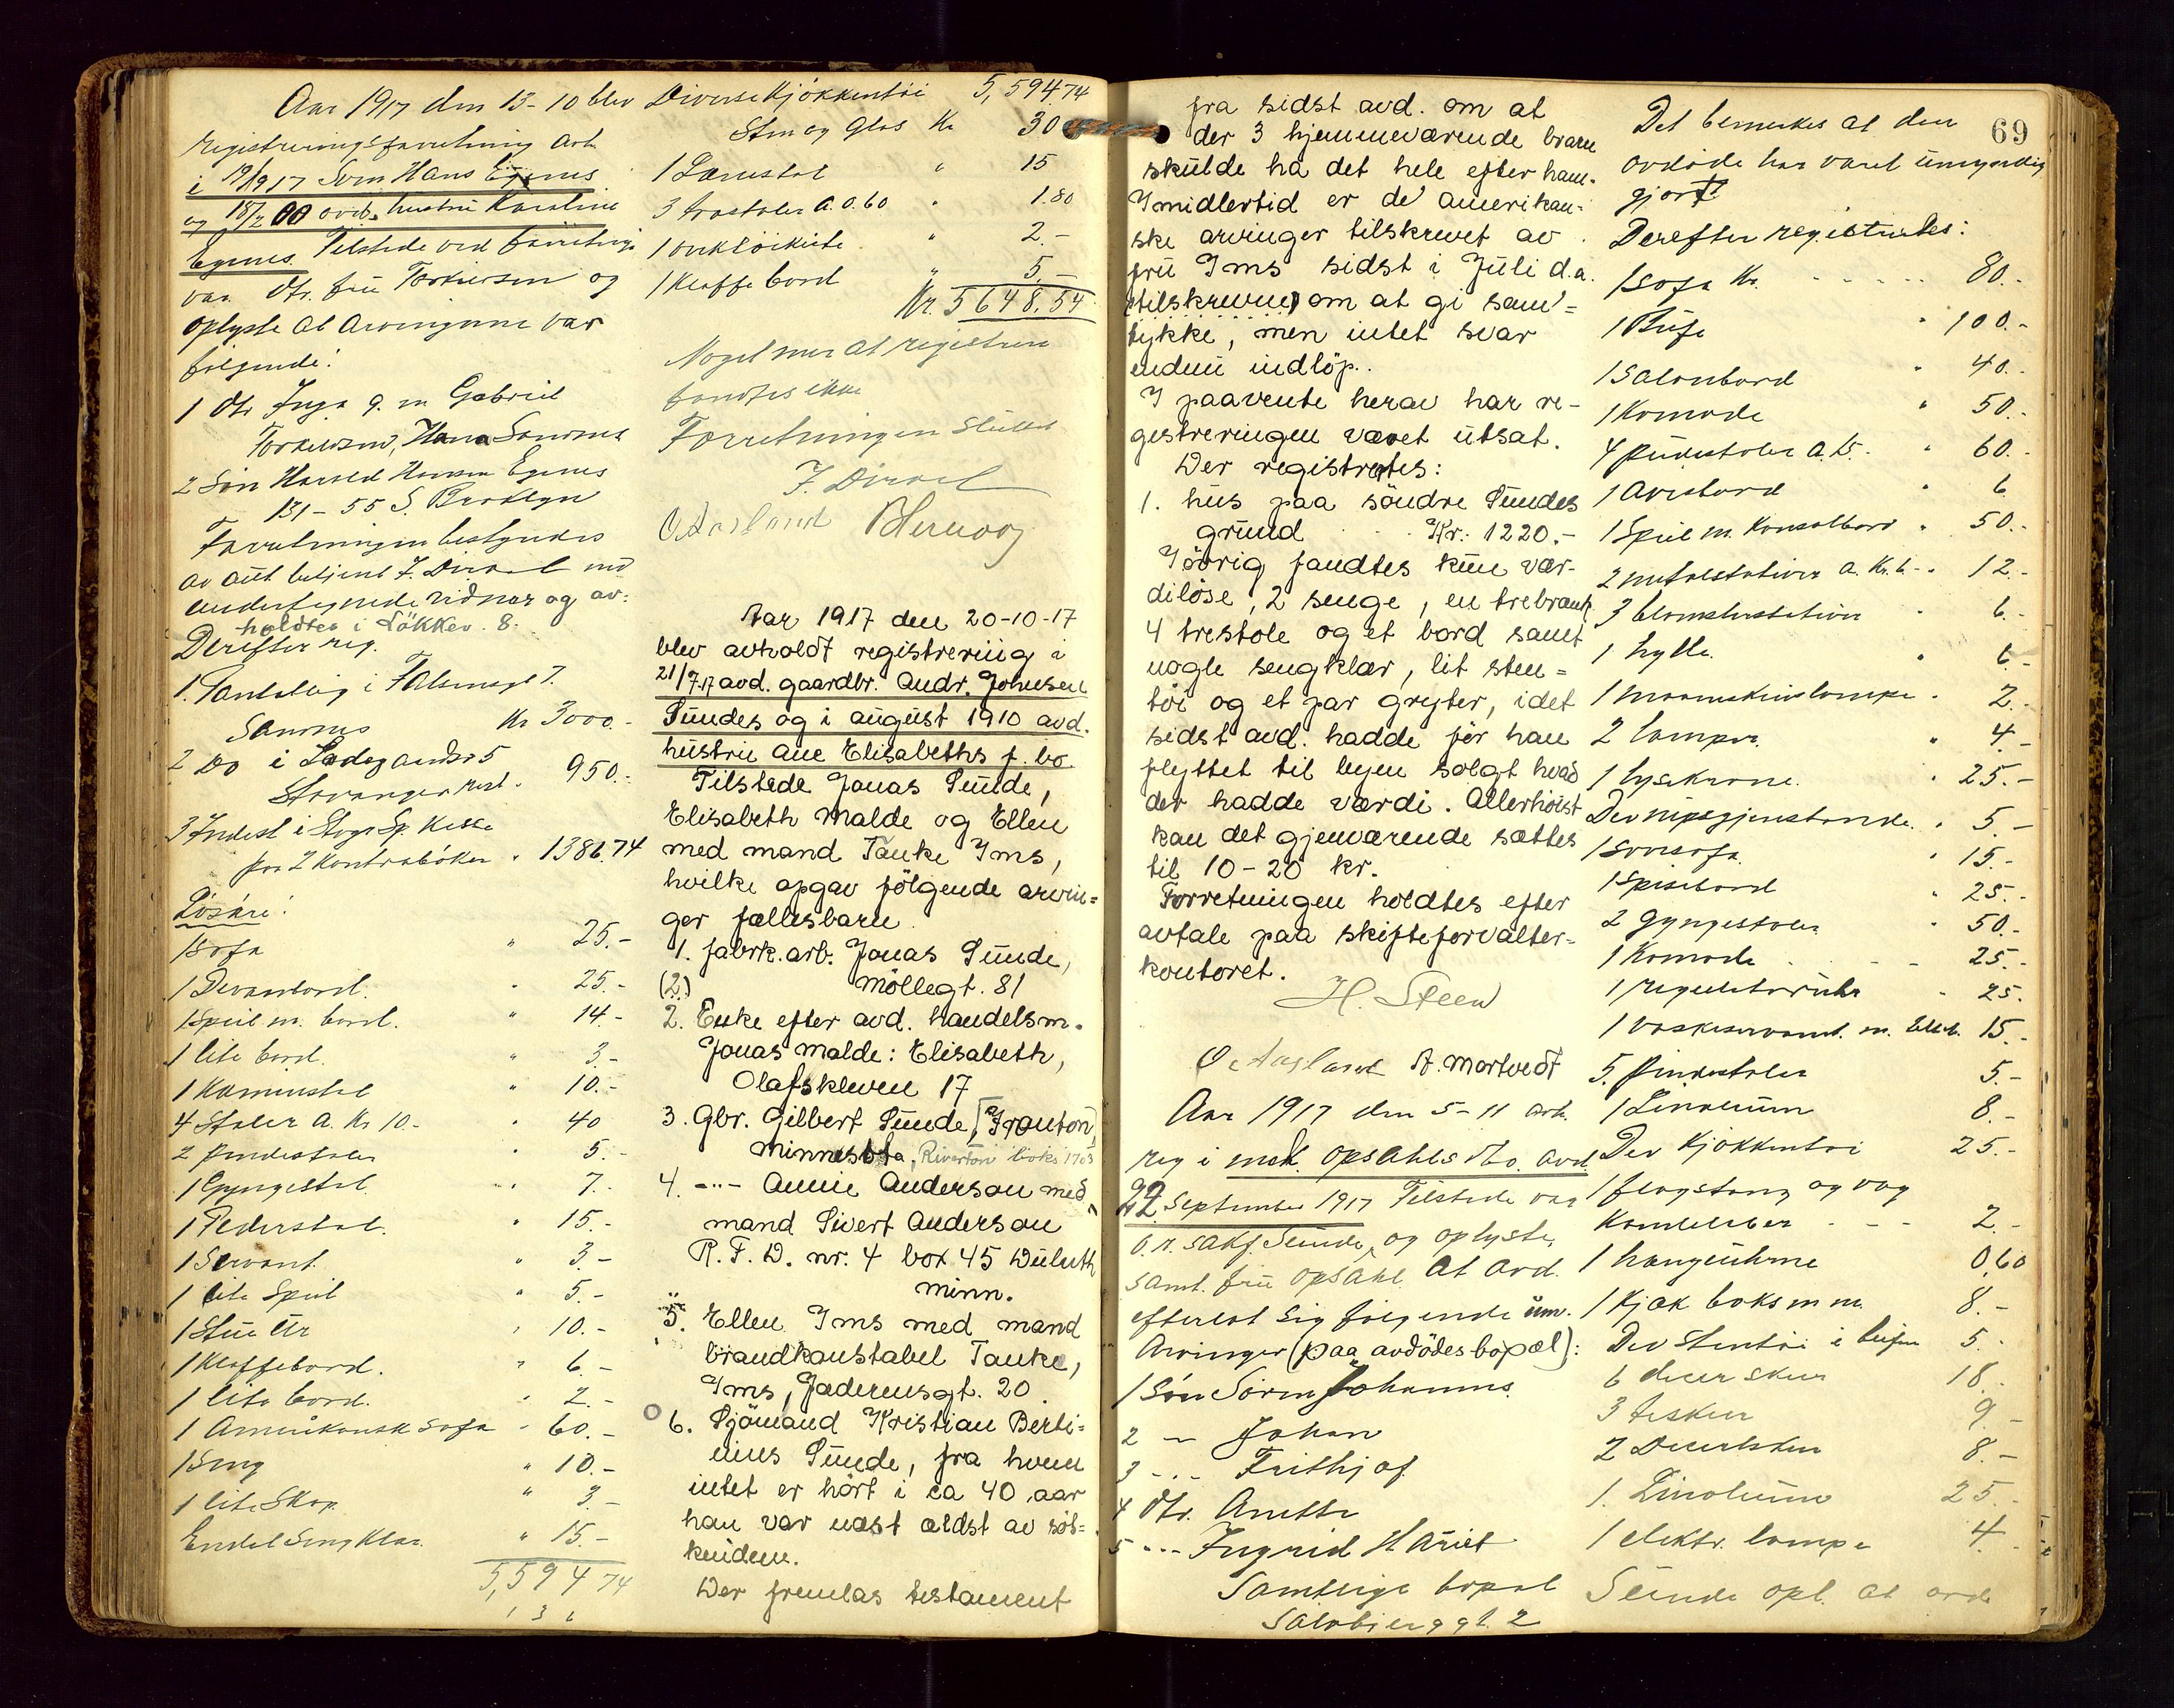 Aar 1917 den 13-10 blev
registreringsforretning avh.
i 19/9 17 Sven Hans Egenes
og 18/2 00 avd. hustru Karoline
Egenes. Tilstede ved forretning
var Dtr. fru Torkelsen og
oplyste at arvingerne var
følgende:
1 Dtr Inga g. m Gabriel
Torkelsen, Hana Sandnes
2 Søn Harald Hansen Egenes
131-55 S. Brooklyn
Forretningen bestyredes
av aut betjent F. Dirdal med
undertegnede vidner og av-
holdtes i Løkkev. 8.
Derefter reg.
1. Panteobl. i
Sandnes Kr 3000.-
2 Do i Ladegaardsv 5
Stavanger rest. 950.-
3 Indest i Stvgr Sp. Kasse
paa 2 Kontrabøker " 1386.74
Løsøre:
1 Sofa " 25.-
1 Divanbord. " 25.-
1 Speil m. bord. " 14.-
1 lite bord. " 3.-
1 Kaminstol " 10.-
4 Stoler a. Kr 10.- " 40
2 Pindestoler " 5.-
1 Gyngestol. " 7.-
1 Piedestal. " 15.-
1 Servant. " 3.-
1 lite Speil " 5.-
1 Stue Ur " 10.-
1 Klaffebord. " 6.-
1 lite bord. " 2.-
1 Amerikansk Sofa " 60.-
1 Seng " 10.-
1 lite Skap. " 3.-
Endel Sengklær. " 15.-
5,594 74
Diverse Kjøkkentøi 5,594 74
Sten og Glas Kr 30
1 Lænestol " 15
3 træstoler a. 0.60 " 1.80
1 " 2.-
1 Klaffebord " 5.-
Kr. 5648.54
Noget mer at registrere
fandtes ikke
Forretningen Sluttet
F. Dirdal
O. Aasland
Aar 1917 den 20-10-17
blev avholdt registrering i
21/7.17 avd. gaardbr. Andr. Johnsen
Sundes og i august 1910 avd.
hustru Ane Elisabeths f. bo.
Tilstede Jonas Sunde,
Elisabeth Malde og Ellen
med mand Tanke Ims,
hvilke opgav følgende arvin=
ger fællesbarn.
1. fabrk. arb. Jonas Sunde,
(2.) Møllegt. 81
2. Enke efter avd. handelsm.
Jonas Malde: Elisabeth,
Olafskleven 17
3. Gbr. Gilbert Sunde, [Granton]
Minnesota, Riverton
4. -"- Annie Anderson med
mand Sivert Anderson
R. F. D. nr. 4 box 45 Duluth
Minn.
5. Ellen Ims med mand
brandkonstabel Tanke,
Ims, Jæderensgt. 20
6. Sjømand Kristian Berti=
nius Sunde, fra hvem
intet er hørt i ca 40 aar
han var næst ældst av søs=
kendene.
Der fremlas testament
fra sidst avd. om at
der 3 hjemmeværende barn
skulde ha det hele efter ham.
Imidlertid er de amerikan-
ske arvinger tilskrevet av
fru Ims sidst i Juli d.a.
(tilskreven) om at gi sam=
tykke, men intet svar
endnu indløp.
I paavente herav har re-
gistreringen været utsat.
Der registrertes:
1. hus paa søndre Sundes
grund Kr: 1220.-
Iøvrig fandtes kun vær-
diløse, 2 senge, en trebænk
4 trestole og et bord samt
nogle sengklær, lit sten=
tøi og et par gryter, idet
sidst avd. hadde før han
flyttet til byen solgt hvad
der hadde værdi. Allerhøist
kan det gjenværende sættes
til 10-20 kr.
Forretningen holdtes efter
avtale paa skifteforvalter=
kontoret.
H. Steen
O. Aasland A. Mortvedt
Aar 1917 den 5-11 avh.
reg i mek. Opsahls Bo. avd.
22 September 1917 Tilstede var
o.r. sakf. Sunde, og oplyste,
samt. fru Opsahl at avd.
efterlot sig følgende um.
Arvinger (paa avdødes bopæl):
1 Søn Søren Johannes.
2 - Johan
3 -"- Frithjof
4 Dtr. Anetta
5 -"- Ingrid Hariet
Samtlige bopæl
Solvbjerggt. 2
69
Det bemerkes at den
avdøde har været umyndig
gjort
Derefter registrertes:
1 Sofa Kr. 80.-
1 Bufe " 100.-
1 Salonbord " 40.-
1 Komode " 50.-
4 pudestoler a. 15.- " 60.-
1 Avisbord " 6.
1 Speil m. Konsolbord " 50.-
2 metalstativer a. Kr. 6.- " 12.-
3 blomsterstativer " 6.-
1 hylle. " 6.-
1 maaneskinslampe " 2.-
2 lamper. " 4.-
1 lysekrone. " 25.-
Div nipsgjenstande. " 5.-
1 sovesofa. " 15.-
1 Spisebord " 25.-
2 Gyngestoler " 50.-
1 Komode 25.-
1 regulatoruhr " 25.
1 vaskeservant m. 15.-
5. Pindestoler 5.-
1 Linoleum 8.-
Div Kjøkkentøi 25.-
1 flagstang og
2.-
0,60
8.-
Div Stentøi i bufen 5.
6 skeer 18.
3 teskeer 9.-
2 8.-
1. Linoleum 25.-
1 elektr. lampe 4.-
Sunde opl. at avd.